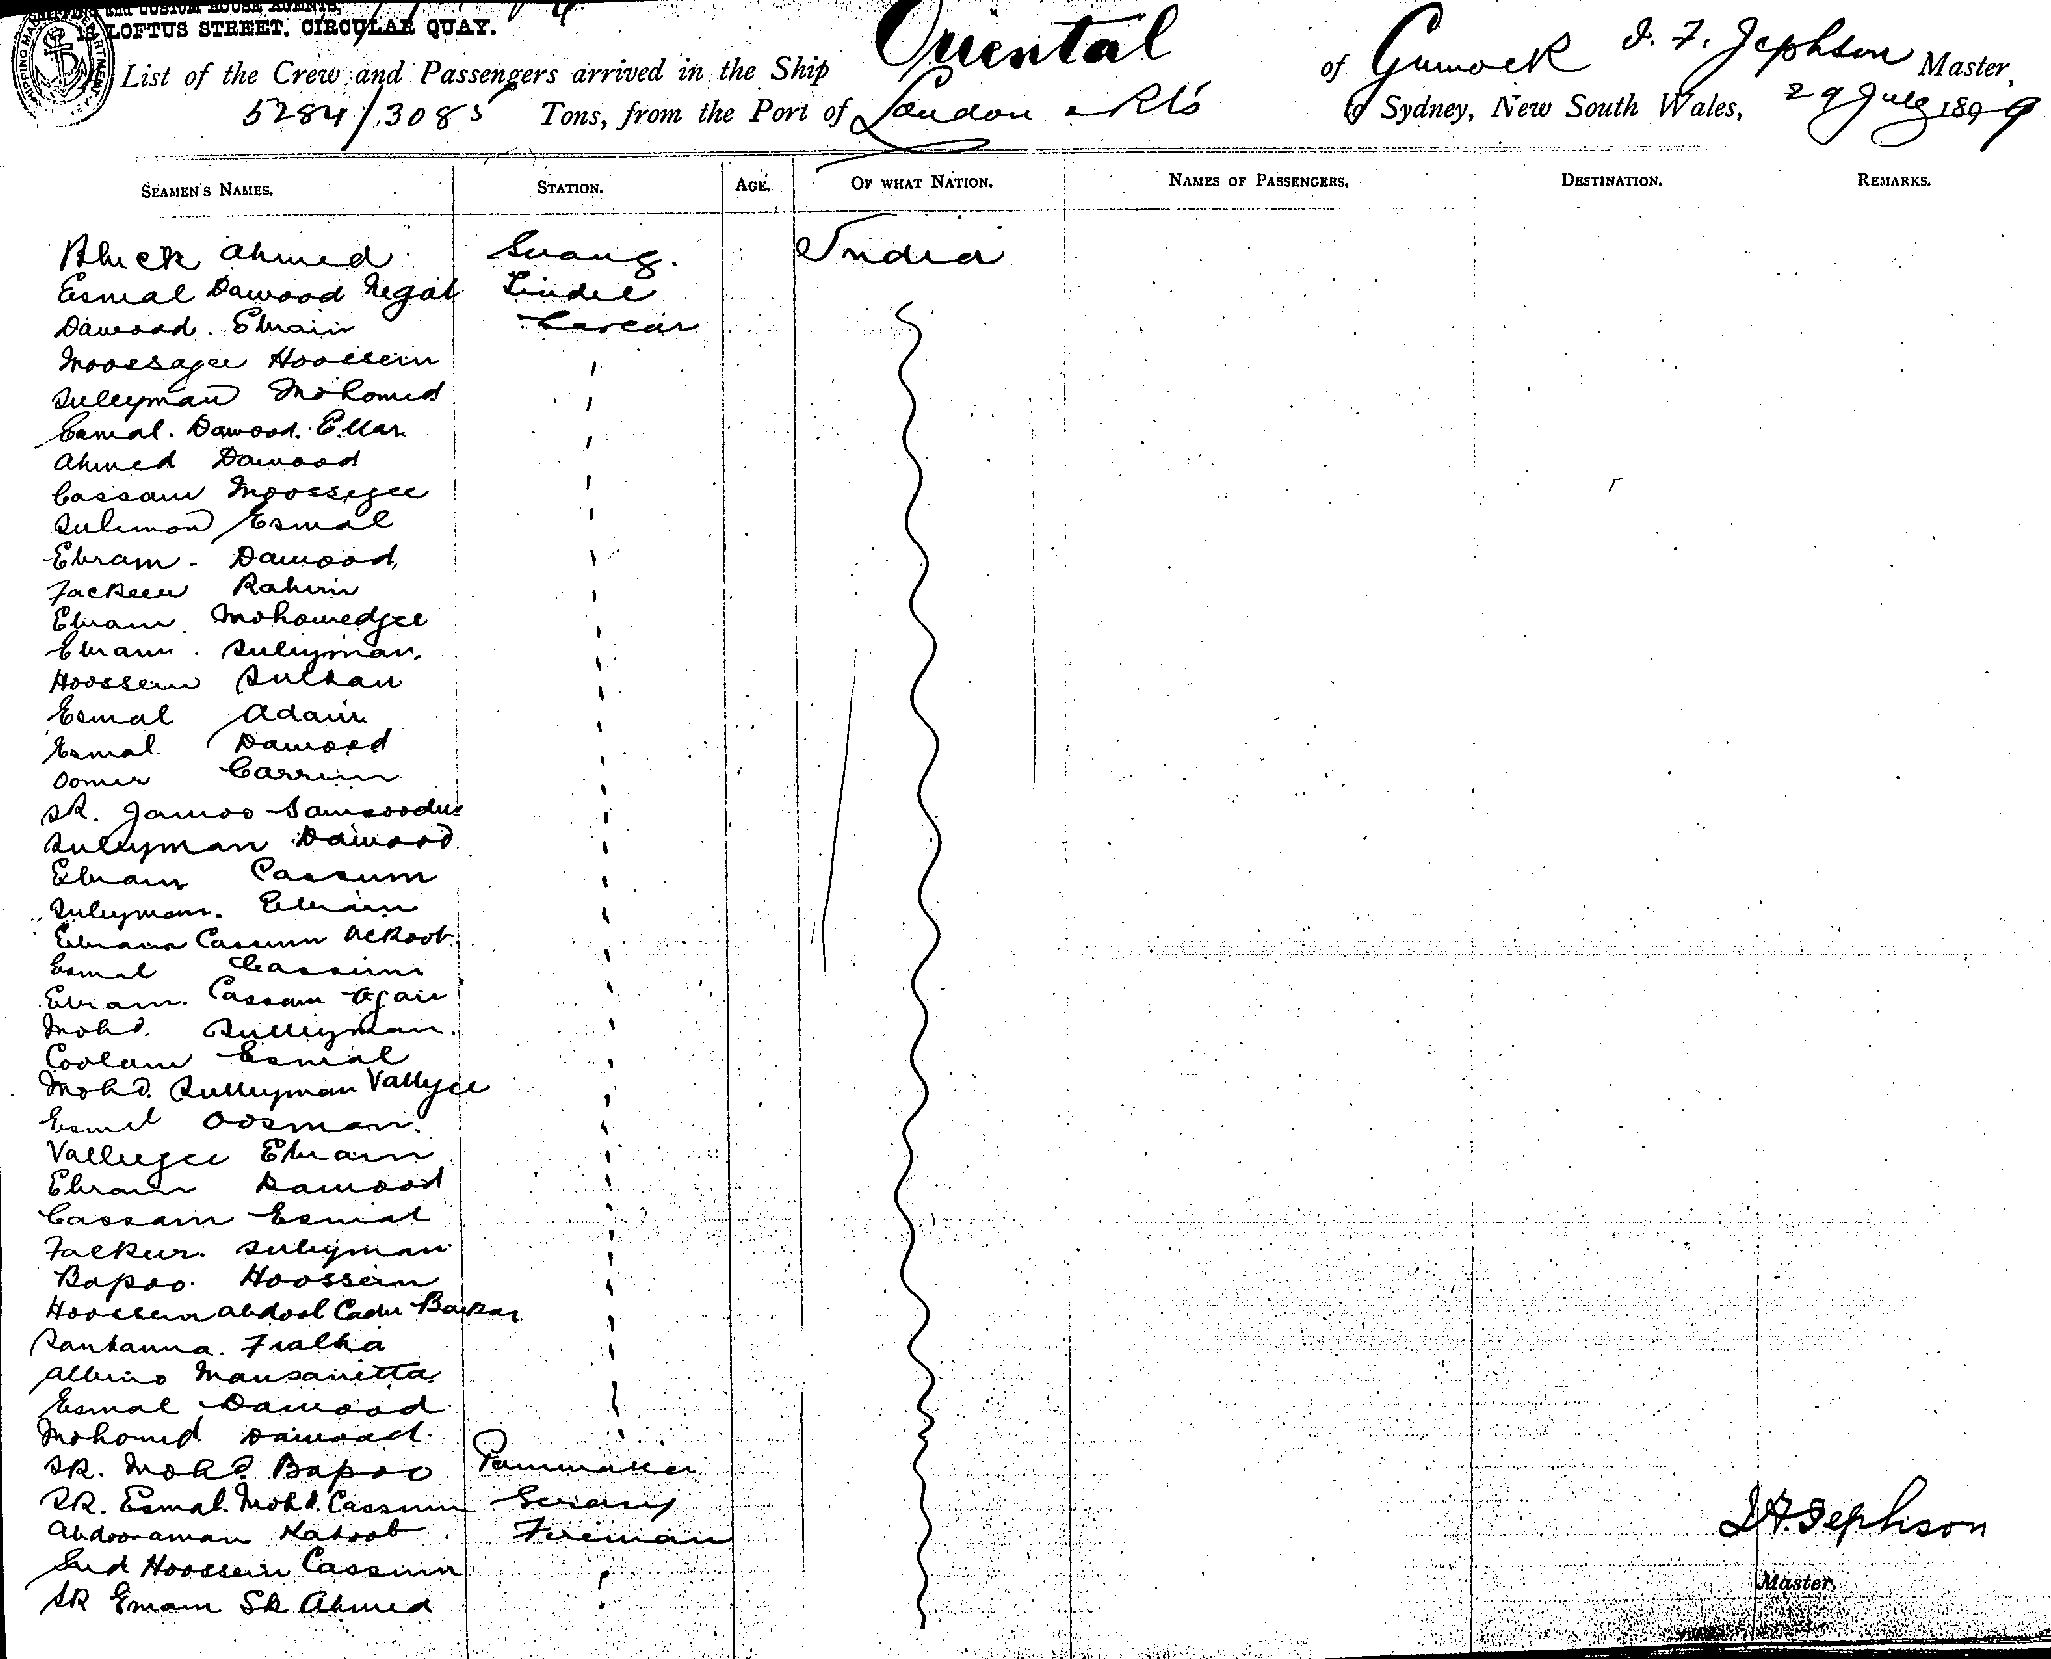 AND CUSTOM HOUSE AGENTS,
LOFTUS STREET, CIRCULAR QUAY.
List of the Crew and Passengers arrived in the Ship Oriental of Gunnock J. F. Jephson Master,
5284/3085 Tons, from the Port of London to Sydney, New South Wales, 29 July 1899
SEAMEN'S NAMES. STATION. AGE. OF WHAT NATION. NAMES OF PASSENGERS. DESTINATION. REMARKS.
Ahmed Serang. India
Esmal Dawood Negal Tindel
Dawood. Ebram Lascar
Moossajee Hoossein
Suleyman Mohomed
Esmal. Dawood. Ellar
Ahmed Dawood
Cassam Moossejee
Sulimon Esmal
Ebram. Dawood
Fackeer Rahim
Ebram Mohomedjee
Ebram. Suleyman.
Hoossein Sultan
Esmal Adam
Esmal Dawood
Oomer Carrim
SK. Jamoo Samsoodin
Suleyman Dawood
Ebram Cassum
Suleyman. Ebram
Ebram Cassum
Esmal Cassum
Ebram. Cassam
Mohd. Sulleyman.
Goolam Esmal
Mohd. Sulleyman Valljee
Esmal Oosman.
Valleejee Ebram
Ebram Dawood
Cassam Esmal
Fackeer. Suleyman
Bapoo. Hoossein
Hoossein Abdool Cader
Santanna. Fialha
Albino
Esmal Dawood
Mohomed Dawood
SK. Mohd. Bapoo
SK. Esmal. Mohd. Cassum Serang
Fireman
J F. Jephson
Hoossein Cassum
Master,
SK Emam SK Ahmed